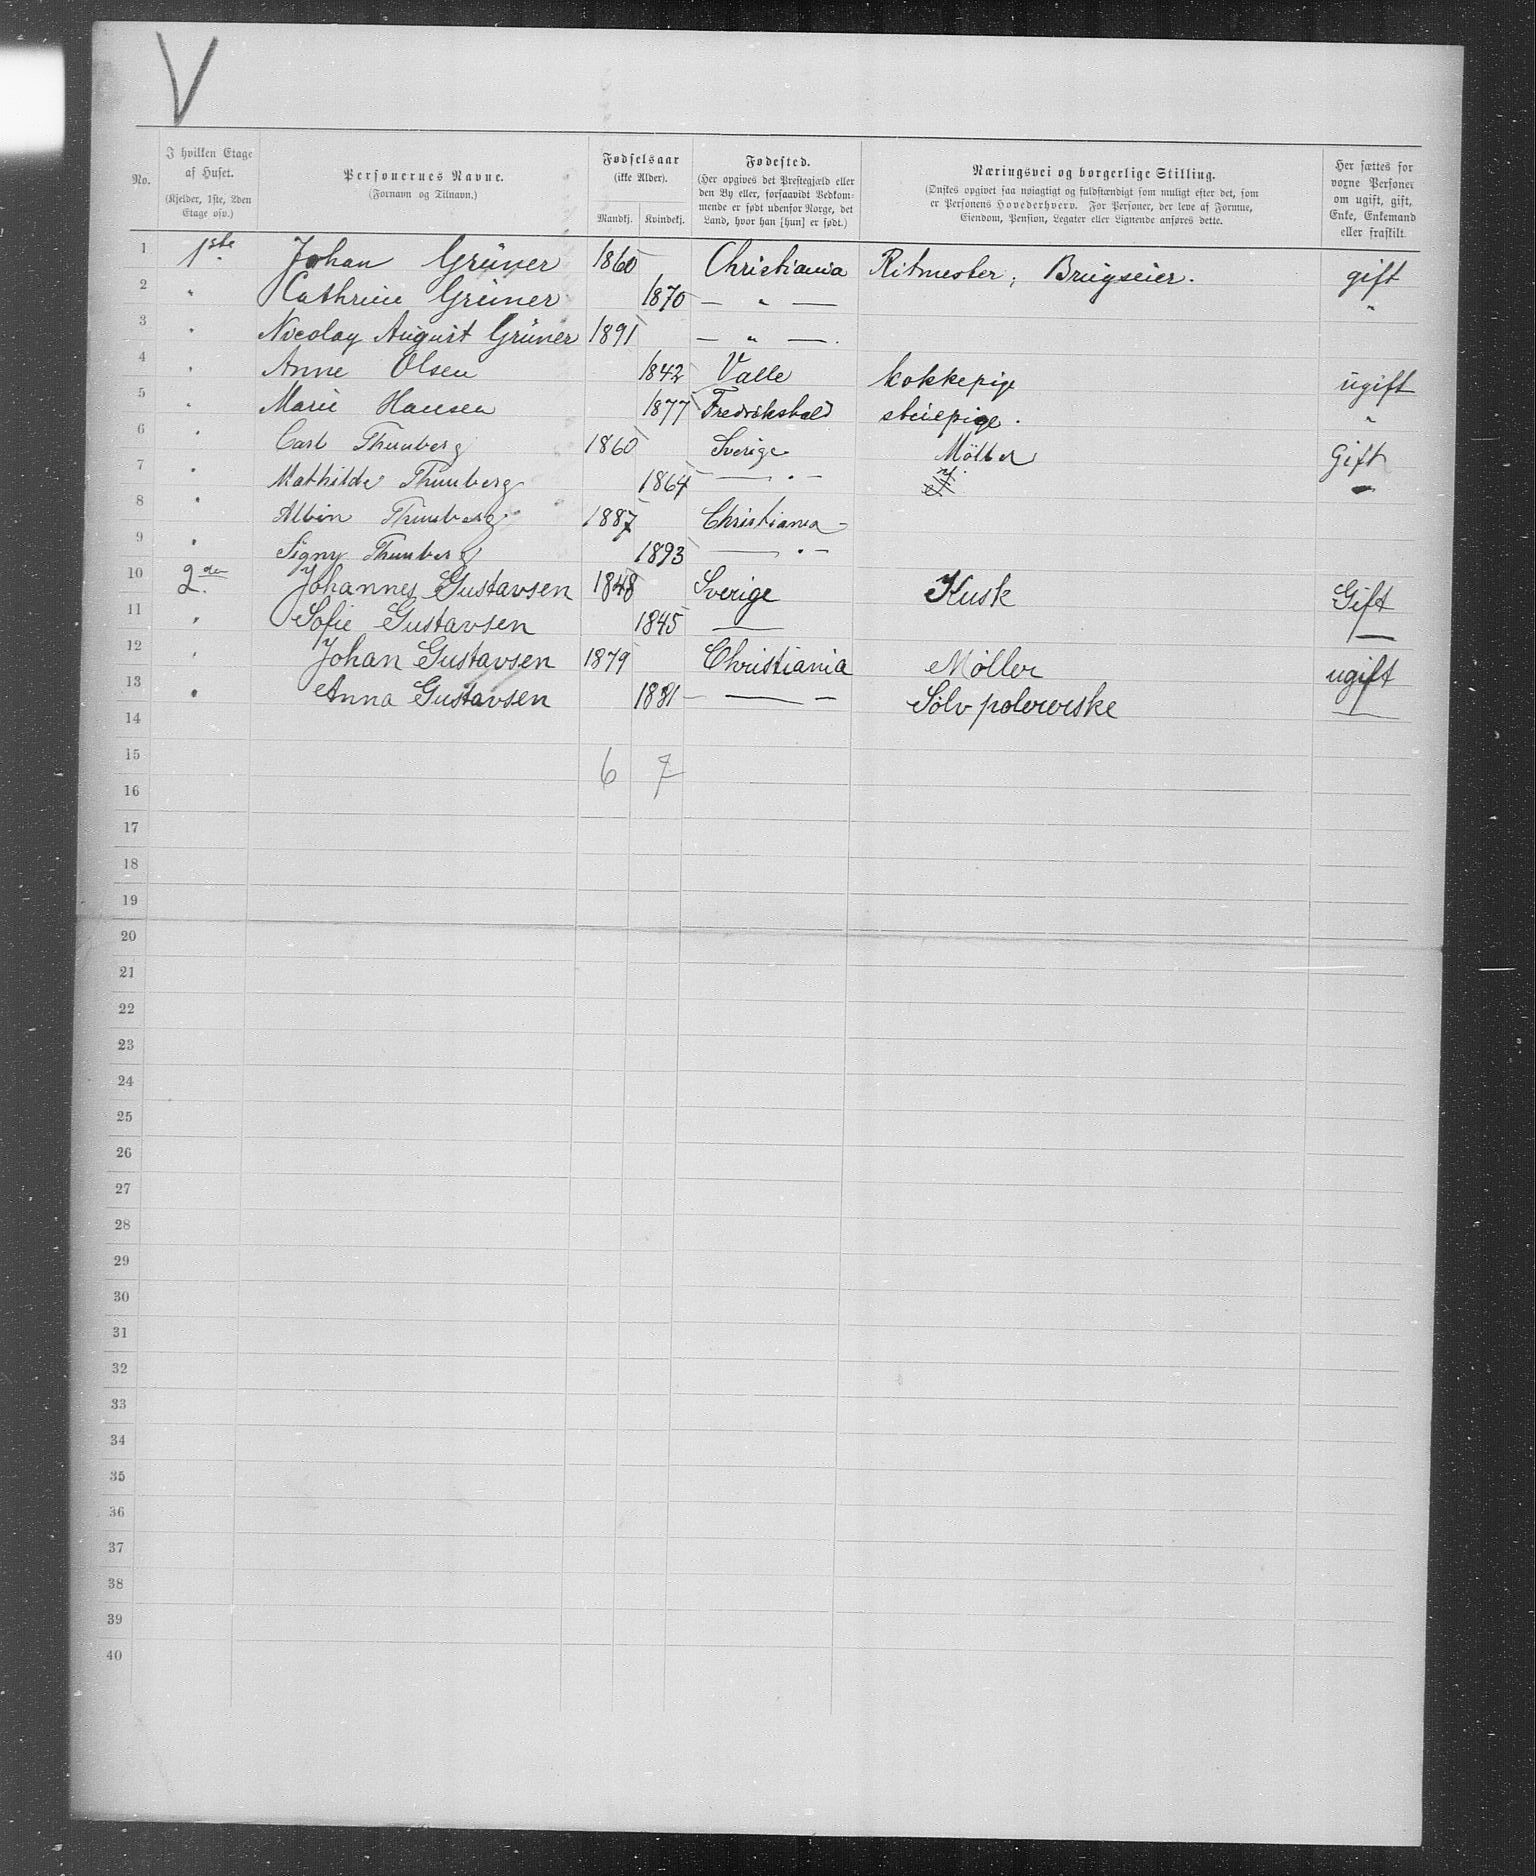 V
No.
I hvilken Etage af Huset. (Kjelder, 1ste, 2den Etage osv.)
Personernes Navne. (Fornavn og Tilnavn.)
Fødselsaar (ikke Alder). Mandkj. Kvindekj.
Fødested. (Her opgives det Prestegjæld eller den By eller, forsaavidt Vedkommende er født udenfor Norge, det Land, hvor han [hun] er født.)
Næringsvei og borgerlige Stilling. (Ønskes opgivet saa nøiagtigt og fuldstændigt som muligt efter det, som er Personens Hovederhverv. For Personer, der leve af Formue, Eiendom, Pension, Legater eller Lignende anføres dette.
Her sættes for voxne Personer om ugift, gift, Enke, Enkemand eller fraskilt.
1 1ste Johan Grüner 1860 Christiania Ritmester; Brugseier. gift
2 " Cathrine Grüner 1870 — " — "
3 " Nicolay August Grüner 1891 — " —.
4 " Anne Olsen 1842 Valle kokkepige ugift
5 " Marie Hansen 1877 Fredrikshald stuepige. "
6 " Carl Thunberg 1860 Sverige Möller Gift
7 " Mathilde Thunberg 1864 — " — —
8 " Albin Thunberg 1887 Christiania -
9 " Signy Thunberg 1893 — " —
10 2den Johannes Gustavsen 1848 Sverige Kusk Gift
11 " Sofie Gustavsen 1845 — —
12 " Johan Gustavsen 1879 Christiania Møller ugift
13 " Anna Gustavsen 1881 — — Sølvpolererske —
14
15 6 7
16
17
18
19
20
21
22
23
24
25
26
27
28
29
30
31
32
33
34
35
36
37
38
39
40